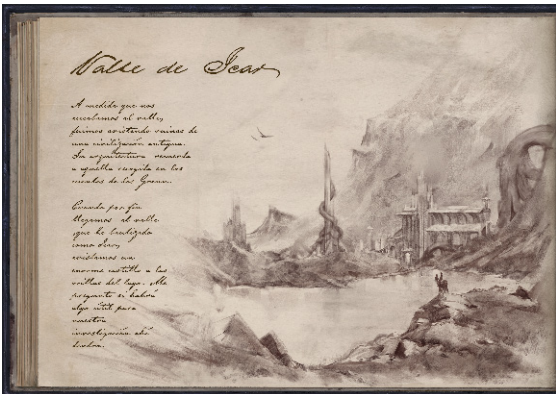 Valle de Icar
A medida que nos
acercamos al valle,
fuimos avistando ruinas de
una civilización antigua.
Su arquitectura recuerda
a aquella surgida en los
montes de los
Cuando por fin
llegamos al valle
que he bautizado
como Icar,
avistamos un
enorme castillo a las
orillas del lago. Me
pregunto si habrá
algo útil para
nuestra
investigación ahí
dentro.